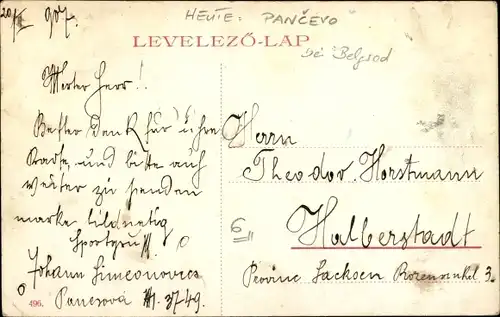 20/II 907.
HEUTE: PANČEVO
bei Belgrad
LEVELEZŐ-LAP
Werter Herr!!
Bester Dank für ihre
Karte, und bitte auch
weiter zu senden
marke bildseitig
Sportgruß
Johann Simeonovics
Pancsova 3749.
496.
Herrn
Theodor Horstmann
6
Halberstadt
Provinc Sacksen Rosenwinkel 3.